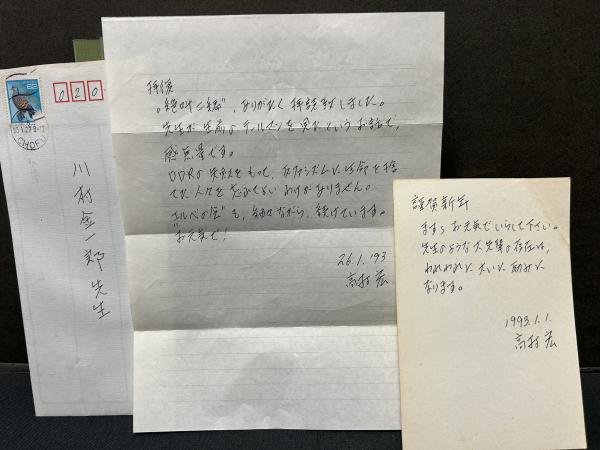 020
川村金一郎先生
拝復
"絶叫二編"、ありがたく拝読致しました。
先生が生前のテールマンを見たというお話で、
感無量です。
DDRの失敗をもって、反ファシズムに生命を捨
てた人々を忘れてもいいわけがありません。
エルベの会"も、細々ながら、続けています。
お元気で!
26.1.'93
高村 宏
謹賀新年
ますますお元気でいらして下さい。
先生のような大先輩の存在は、
われわれに大いに励みに
なります。
1993.1.1.
高村 宏